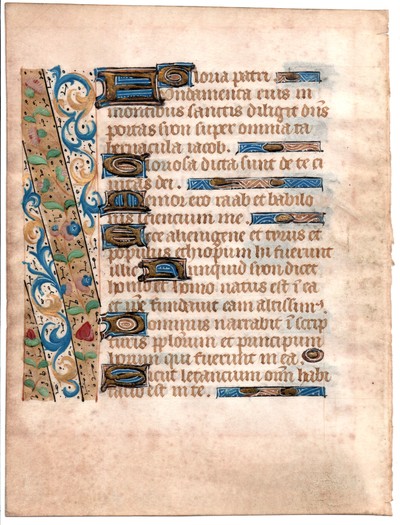 Gloria patri
Fundamenta eius in
montibus sanctis diligit dn̄s
portas syon super omnia ta
bernacula iacob.
Gloriosa dicta sunt de te ci
uitas dei.
Memor ero raab et babilo
nis scientium me.
Ecce alienigene et tyrus et
populus ethiopum hi fuerunt
illic Nunquid syon dicet
homo et homo natus est ī ea
et ip̄e fundauit eam altissim9
Dominus narrabit ī scrip
turis ip̄lorum et principum
horum qui fuerunt in ea.
Sicut letancium om̄ habi
tatio est in te.